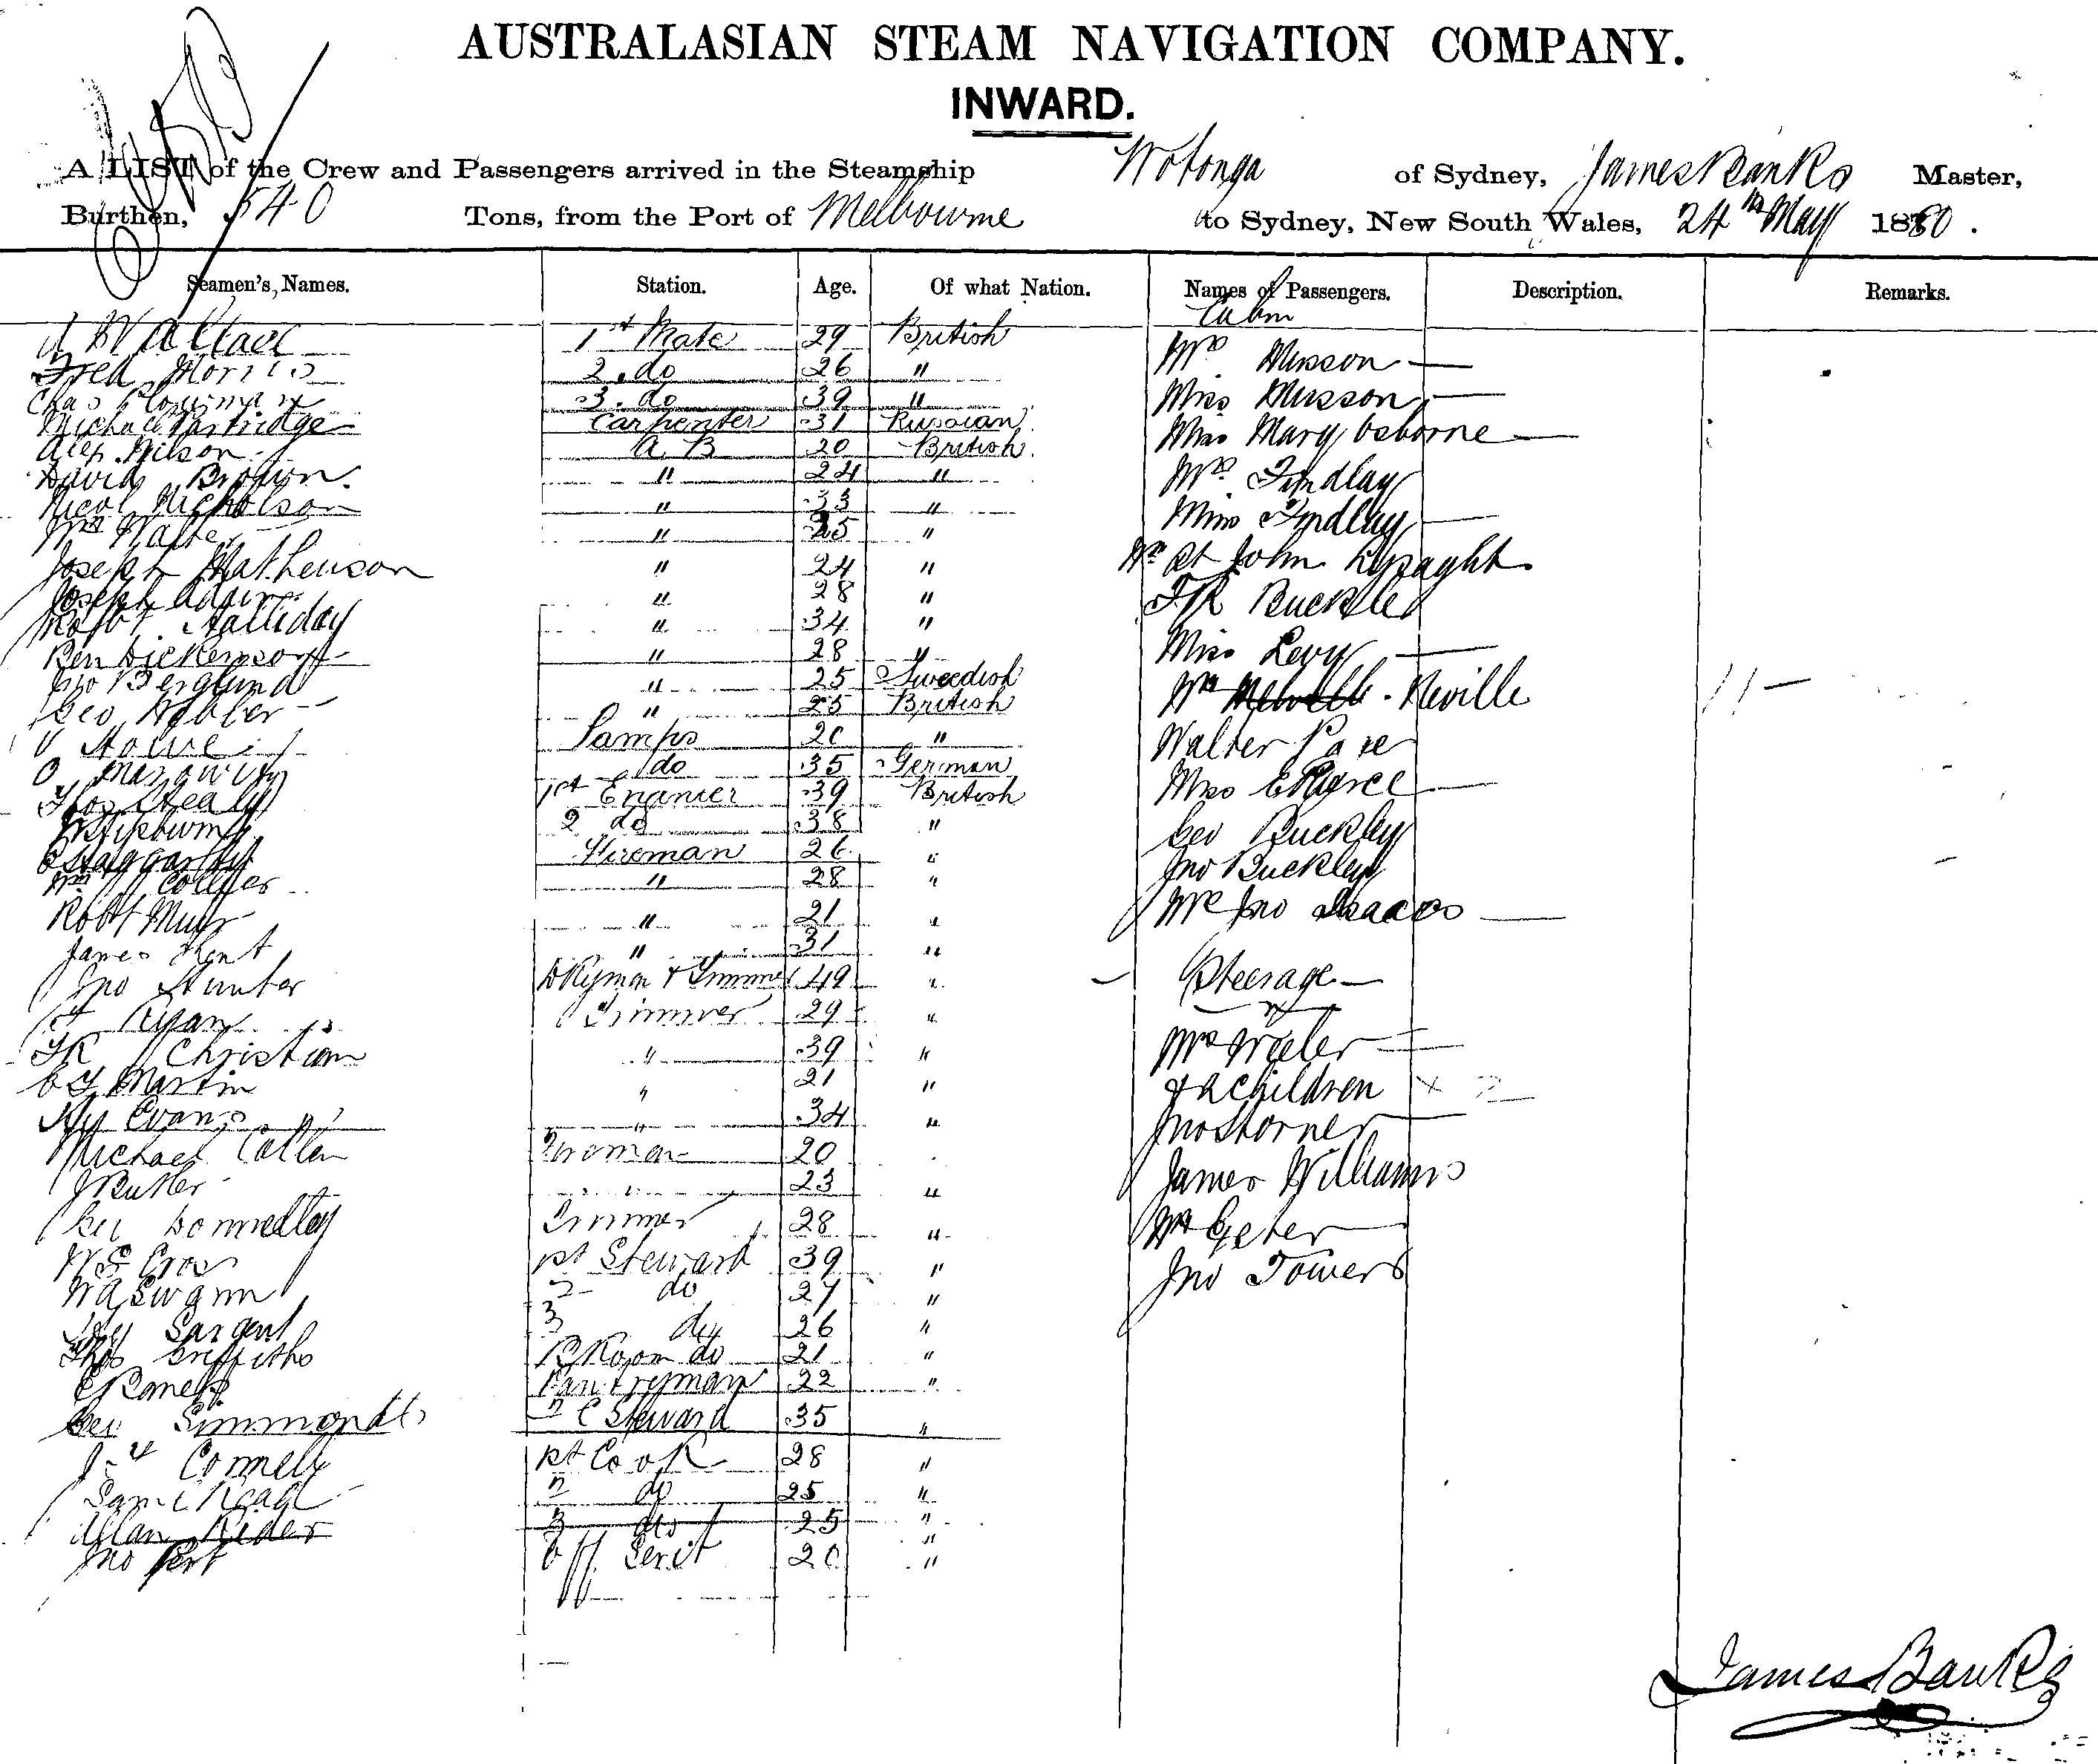 AUSTRALASIAN STEAM NAVIGATION COMPANY.
INWARD.
A LIST of the Crew and Passengers arrived in the Steamship Wotonga of Sydney, James Banks Master,
Burthen, 540 Tons, from the Port of Melbourne to Sydney, New South Wales, 24th May 1880.
Seamen's Names. Station. Age. Of what Nation. Names of Passengers. Description. Remarks.
Cabin
Wallace 1st Mate 29 British Mrs Musson
Fred Morris 2. do 26 " Miss Musson
Chas 3. do 39 " Miss Mary Osborne
Michael Partridge Carpenter 31 Russian
Alex. Wilson A B 20 British
David Brown. " 24 " Mrs Findlay
Nicol Nicholson " 33 " Miss Findlay
Wm " 25 "
Joseph Mathewson " 24 " Wm St John Lysaght
Joseph " 28 " F R Buckle
Robt. Halliday " 34 "
Ben Dickenson " 28 " Miss Levy
Jno Berglund " 25 Sweedish Wm Neville
Geo Webber " 25 British
Howe Lamps 20 " Walter
do 35 German Miss
Thos Healy 1st Enginier 39 British
2 do 38 " Geo Buckley
Haggarty Fireman 26 " Jno Buckley
Wm Collier " 28 "
Robt Muir " 21 " Mr Jno Isaacs
James Kent " 31 "
Jno Hunter Dkyman & Trimmer 49 " Steerage
Ryan Trimmer 29 "
Christian " 39 " Mrs
Martin " 21 " & 2 children x 2
Hy Evans " 34 " Jno Horner
Michael Callen Fireman 20
J Butler " 23 " James Williams
Geo Donnelley Trimmer 28 " Wm
W E Cross 1st Steward 39 " Jno Towers
W G Swann 2 do 27 "
Sargent 3 do 26 "
Thos Griffiths B Room do 21 "
Pantryman 22 "
Geo Simmonds 2 C Steward 35 "
Connelly 1st Cook 28 "
Saml Read 2 do 25 "
Allan Rider 3 do 25 "
Jno Pert Off. Servt 20 "
James Banks